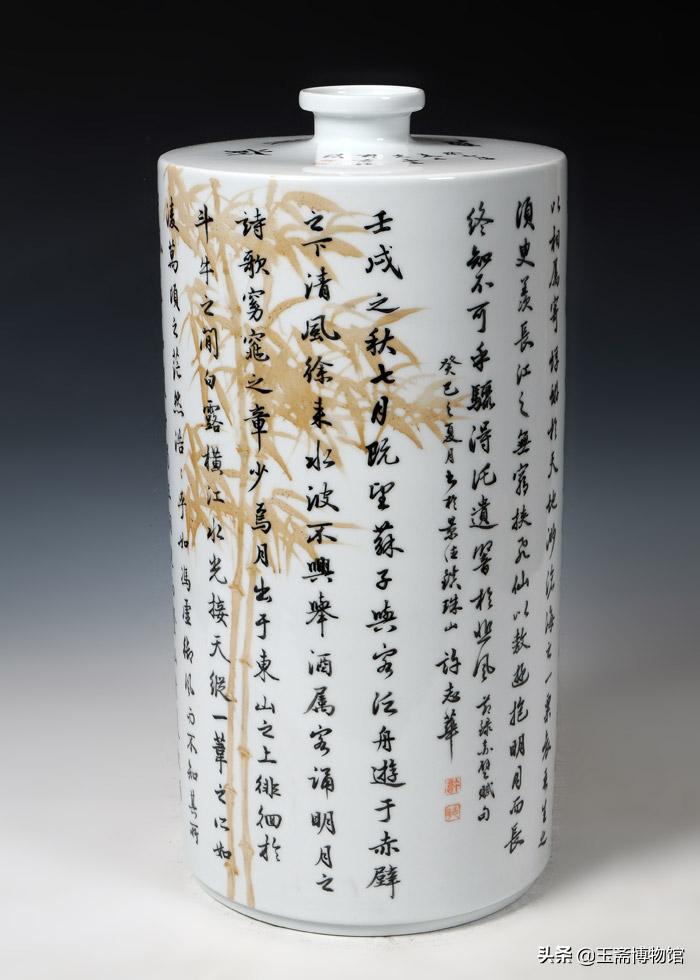 以相屬寄蜉蝣於天地渺滄海之一粟哀吾生之
須臾羨長江之無窮挾飛仙以敖遊抱明月而長
終知不可乎驟得托遺響於悲風 節録赤壁賦句
癸巳之夏月書於景德鎮珠山 許志華
壬戌之秋七月既望蘇子與客泛舟遊于赤壁
之下清風徐来水波不興舉酒属客誦明月之
詩歌窈窕之章少焉月出于東山之上徘徊於
斗牛之間白露橫江水光接天縱一葦之所如
凌萬頃之茫然浩浩乎如馮虛御風而不知其所
头条 @玉斋博物馆